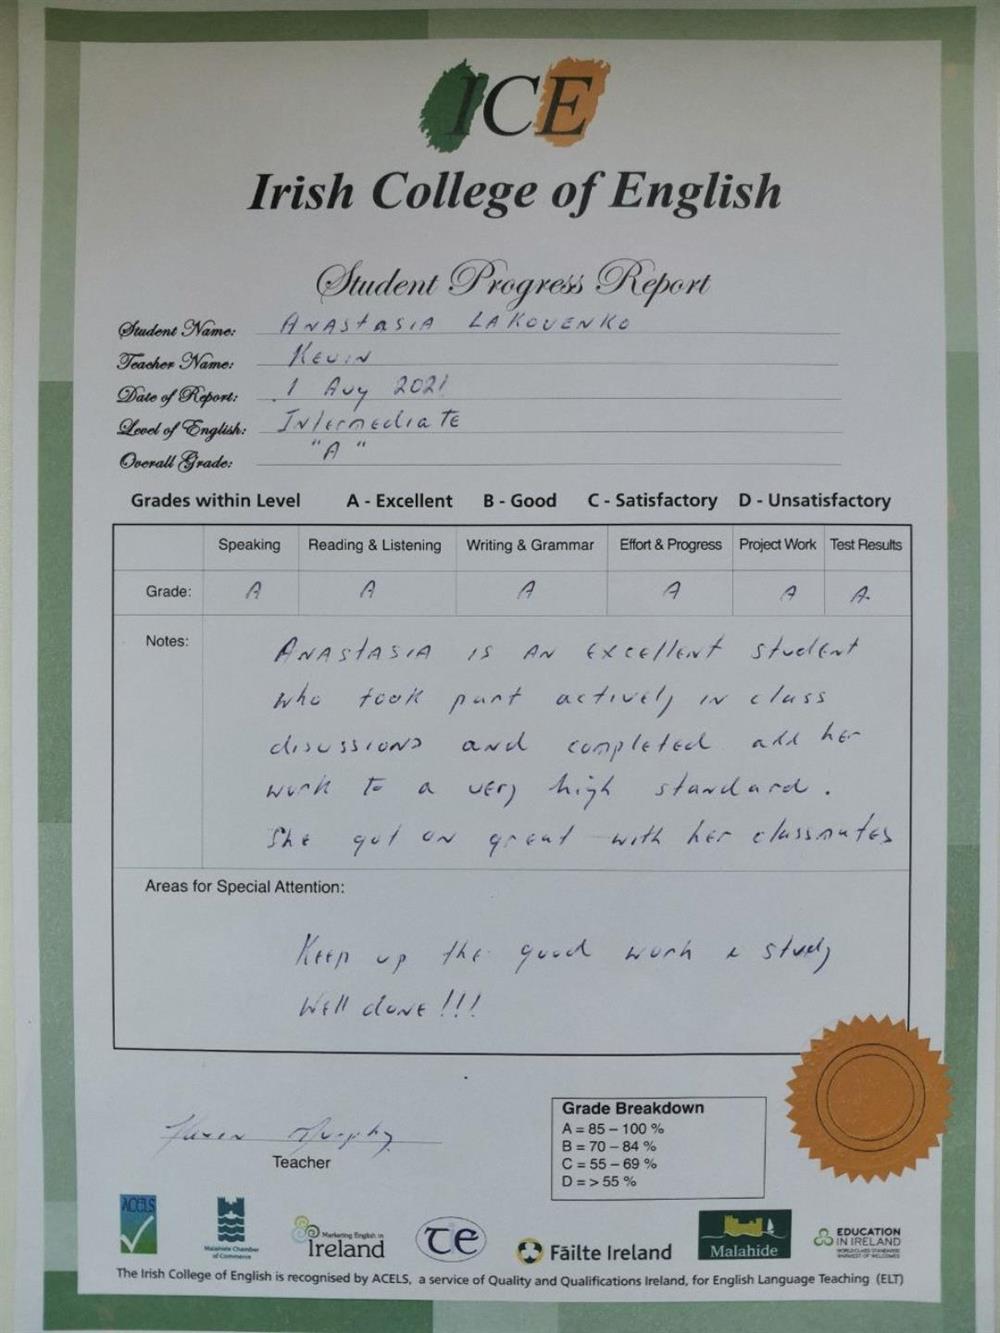 ICE
Irish College of English
Student Progress Report
Student Name: ANAStaSIA LAKOVENKO
Teacher Name: KEVIN
Date of Report: 1 Aug 2021
Level of English: Intermediate
Overall Grade: "A"
Grades within Level A - Excellent B - Good C - Satisfactory D - Unsatisfactory
Speaking Reading & Listening Writing & Grammar Effort & Progress Project Work Test Results
Grade: A A A A A A.
Notes: ANAStASIA IS AN Excellent student
who took part actively in class
discussions and completed all her
work to a very high standard.
She got on great with her classmates
Areas for Special Attention:
Keep up the good work & study
Well done!!!
Kevin Murphy
Teacher
Grade Breakdown
A = 85 – 100 %
B = 70 – 84 %
C = 55 – 69 %
D = > 55 %
ACELS
Malahide Chamber
of Commerce
Marketing English in
Ireland
TIE
Fáilte Ireland
Malahide
EDUCATION
IN IRELAND
WORLD CLASS STANDARDS
WARMEST OF WELCOMES
The Irish College of English is recognised by ACELS, a service of Quality and Qualifications Ireland, for English Language Teaching (ELT)